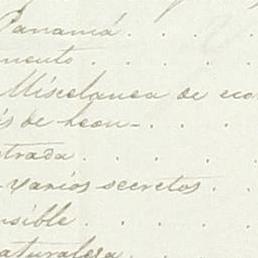 Panamá . . .
mento . . . .
Miscelanea de eco
is de Leon - . . .
trada . . . .
varios secretos . .
nsible . . . .
aturalesa . . .